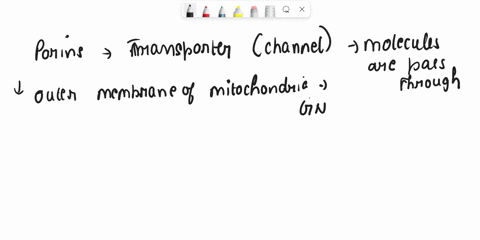 Porins → Transporter (channel) → molecules
are pass
through
↓ outer membrane of mitochondria →
GN